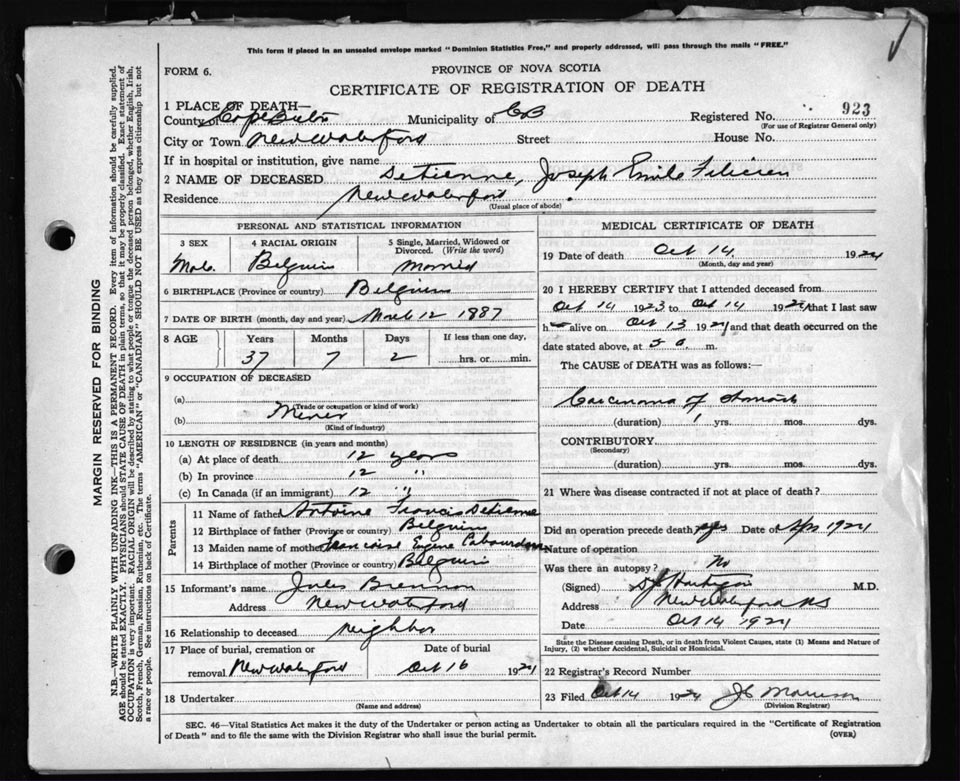 This form if placed in an unsealed envelope marked "Dominion Statistics Free," and properly addressed, will pass through the mails "FREE."
FORM 6.
PROVINCE OF NOVA SCOTIA
CERTIFICATE OF REGISTRATION OF DEATH
1 PLACE OF DEATH—
County of Cape Breton Municipality of CB Registered No. 923
(For use of Registrar General only)
City or Town New Waterford Street House No.
If in hospital or institution, give name
2 NAME OF DECEASED Detienne, Joseph Emile Felicien
Residence New Waterford
(Usual place of abode)
PERSONAL AND STATISTICAL INFORMATION
3 SEX 4 RACIAL ORIGIN 5 Single, Married, Widowed or Divorced. (Write the word)
Male Belguim Married
6 BIRTHPLACE (Province or country) Belguim
7 DATE OF BIRTH (month, day and year) March 12 1887
8 AGE Years Months Days If less than one day,
37 7 2 hrs. or min.
9 OCCUPATION OF DECEASED
(a)
(Trade or occupation or kind of work)
(b) Miner
(Kind of industry)
10 LENGTH OF RESIDENCE (in years and months)
(a) At place of death 12 years
(b) In province 12 "
(c) In Canada (if an immigrant) 12 "
Parents
11 Name of father Antoine Francis Detienne
12 Birthplace of father (Province or country) Belguim
13 Maiden name of mother Eugene
14 Birthplace of mother (Province or country) Belguim
15 Informant's name Jules
Address New Waterford
16 Relationship to deceased neighbor
17 Place of burial, cremation or removal New Waterford Date of burial Oct 16 1924
18 Undertaker
(Name and address)
MEDICAL CERTIFICATE OF DEATH
19 Date of death Oct 14 1924
(Month, day and year)
20 I HEREBY CERTIFY that I attended deceased from
Oct 14 1923 to Oct 14 1924 that I last saw
h alive on Oct 13 1924 and that death occurred on
date stated above, at 5 a. m.
The CAUSE of DEATH was as follows:—
Carcinoma of Stomach
(duration) 1 yrs. mos. dys.
CONTRIBUTORY
(Secondary)
(duration) yrs. mos. dys.
21 Where was disease contracted if not at place of death?
Did an operation precede death yes Date of Apr 1924
Nature of operation
Was there an autopsy? No
(Signed) M.D.
Address New Waterford NS
Date Oct 14 1924
State the Disease causing Death, or in death from Violent Causes, state (1) Means and Nature of
Injury, (2) whether Accidental, Suicidal or Homicidal.
22 Registrar's Record Number
23 Filed Oct 14 1924 J C Morrison
(Division Registrar)
SEC. 46—Vital Statistics Act makes it the duty of the Undertaker or person acting as Undertaker to obtain all the particulars required in the "Certificate of Registration
of Death" and to file the same with the Division Registrar who shall issue the burial permit. (OVER)
MARGIN RESERVED FOR BINDING
N.B.—WRITE PLAINLY WITH UNFADING INK—THIS IS A PERMANENT RECORD. Every item of information should be carefully supplied.
AGE should be stated EXACTLY. PHYSICIANS should STATE CAUSE OF DEATH in plain terms, so that it may be properly classified. Exact statement of
OCCUPATION is very important. RACIAL ORIGIN will be described by stating to what people or tongue the deceased person belonged, whether English, Irish,
Scotch, French, German, Russian, Ruthenian, etc. The terms "AMERICAN" or "CANADIAN" SHOULD NOT BE USED as they express citizenship but not
a race or people. See instructions on back of Certificate.